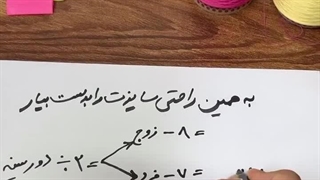 به همین راحتی سایزت را بدست بیار
= ۸ - زوج
دور سینه ÷ ۲ =
= ۷ - فرد